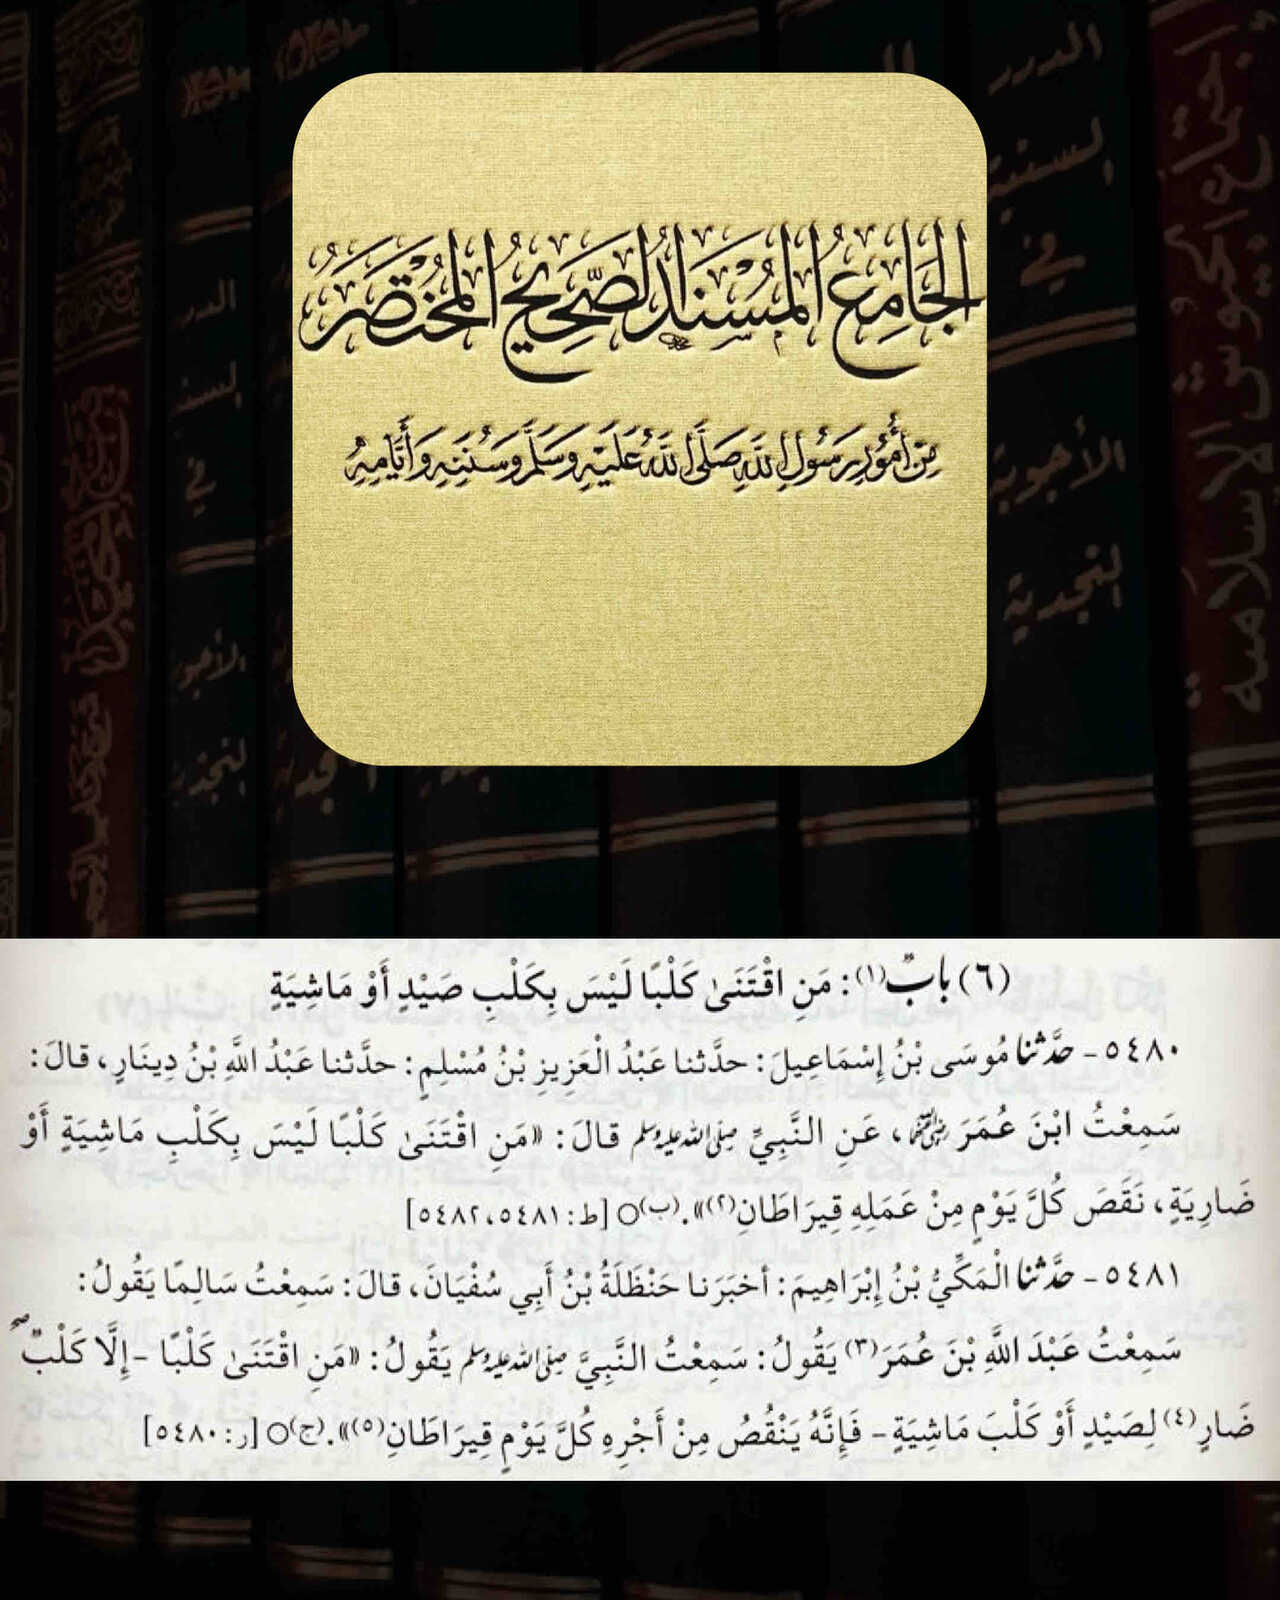 الجَامِعُ المُسْنَدُ الصَّحِيحُ المُخْتَصَرُ
مِنْ أُمُورِ رَسُولِ اللهِ صَلَّى اللهُ عَلَيْهِ وَسَلَّمَ وَسُنَنِهِ وَأَيَّامِهِ
الدرر
السنية
في
الأجوبة
النجدية
(٦) بابٌ(١): مَنِ اقْتَنَىٰ كَلْبًا لَيْسَ بِكَلْبِ صَيْدٍ أَوْ مَاشِيَةٍ
٥٤٨٠ - حدَّثنا مُوسَى بْنُ إِسْمَاعِيلَ: حدَّثنا عَبْدُ الْعَزِيزِ بْنُ مُسْلِمٍ: حدَّثنا عَبْدُ اللَّهِ بْنُ دِينَارٍ، قالَ:
سَمِعْتُ ابْنَ عُمَرَ رضي الله عنهما، عَنِ النَّبِيِّ صلى الله عليه وسلم قالَ: «مَنِ اقْتَنَىٰ كَلْبًا لَيْسَ بِكَلْبِ مَاشِيَةٍ أَوْ
ضَارِيَةٍ، نَقَصَ كُلَّ يَوْمٍ مِنْ عَمَلِهِ قِيرَاطَانِ(٢)».(ب)○ [ط: ٥٤٨١، ٥٤٨٢]
٥٤٨١ - حدَّثنا الْمَكِّيُّ بْنُ إِبْرَاهِيمَ: أخبَرَنا حَنْظَلَةُ بْنُ أَبِي سُفْيَانَ، قالَ: سَمِعْتُ سَالِمًا يَقُولُ:
سَمِعْتُ عَبْدَ اللَّهِ بْنَ عُمَرَ(٣) يَقُولُ: سَمِعْتُ النَّبِيَّ صلى الله عليه وسلم يَقُولُ: «مَنِ اقْتَنَىٰ كَلْبًا -إِلَّا كَلْبٌ
ضَارٍ(٤) لِصَيْدٍ أَوْ كَلْبَ مَاشِيَةٍ- فَإِنَّهُ يَنْقُصُ مِنْ أَجْرِهِ كُلَّ يَوْمٍ قِيرَاطَانِ(٥)».(ج)○ [ر: ٥٤٨٠]